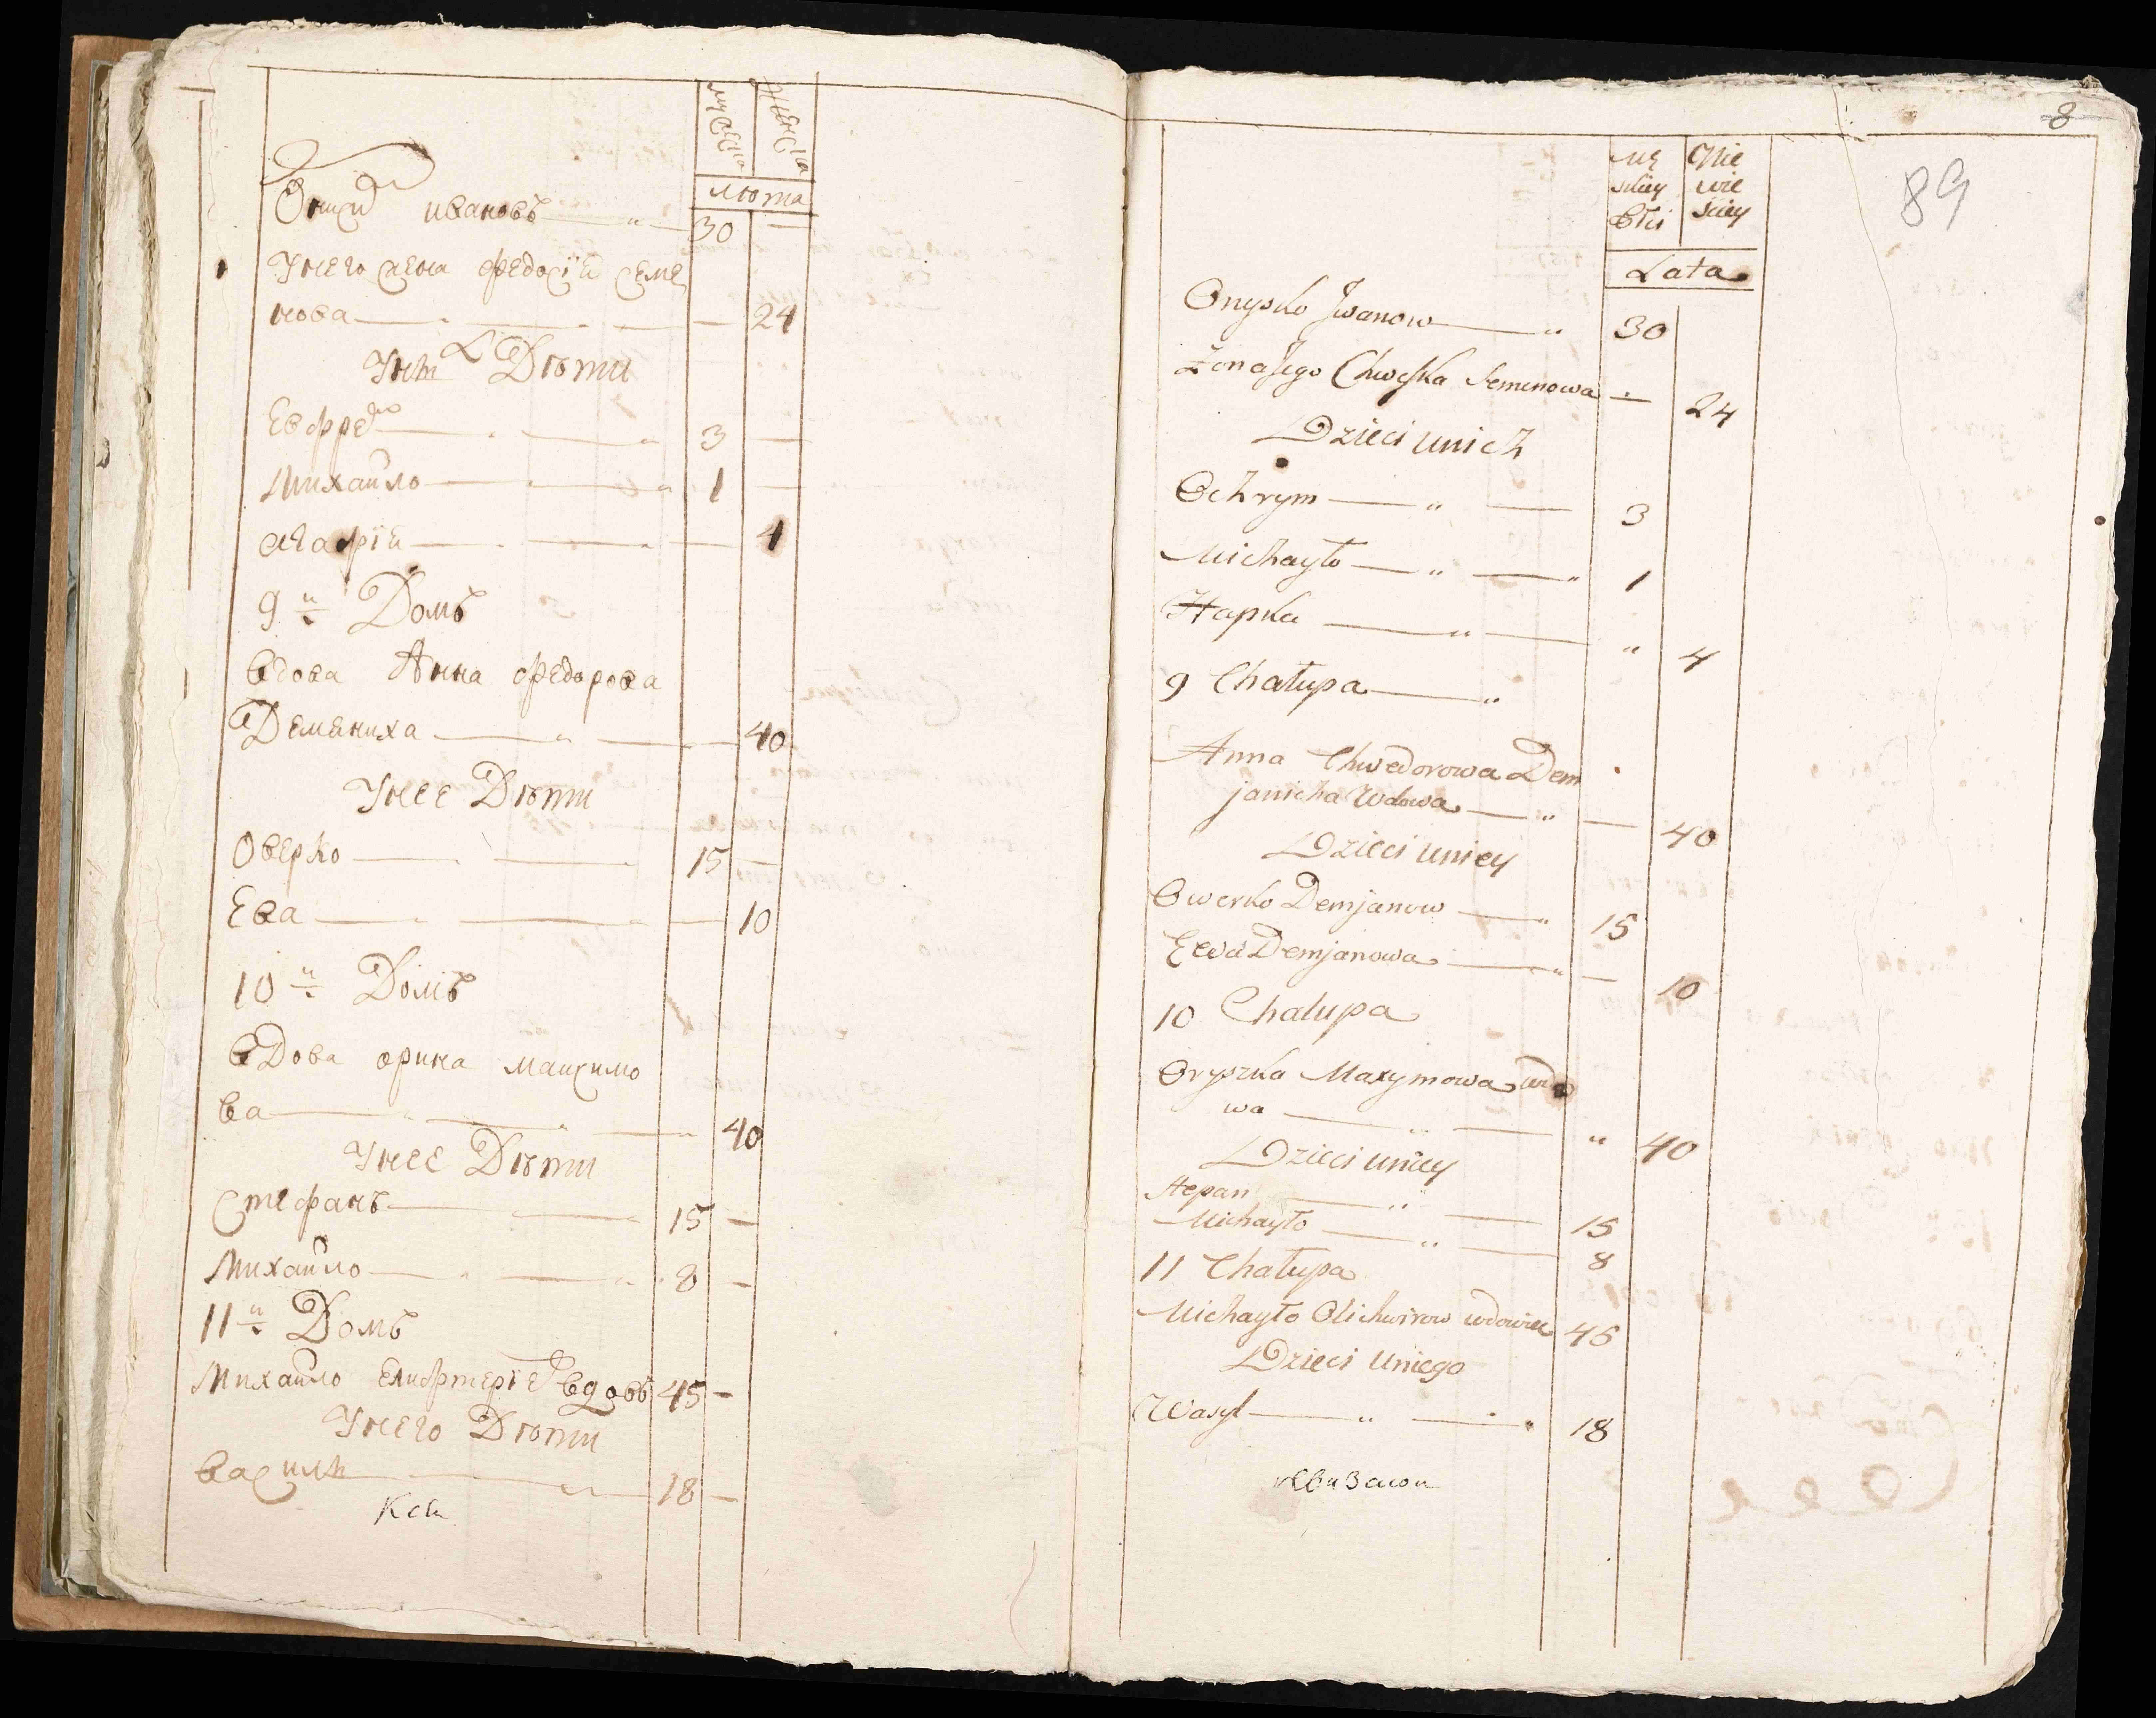 мужеска
женска
лѣта
Онисй ивановъ 30 —
Унего жена федосїя семе
нова — 24
Унихъ Дѣти
Евфре 3 —
Михайло 1 —
агафїя — 4
9й Домъ
вдова Анна федорова
Демяниха — 40
Унее Дѣти
Оверко 15 —
Ева — 10
10й Домъ
вДова орина максимо
ва — 40
Унее Дѣти
Стефанъ 15 —
Михайло 8 —
11й Домъ
Михайло елифтерїе вдовъ 45 —
Унего Дѣти
василь 18 —
Ксе
8
89
Mę
skiey
Płci
Nie
wie
sciey
Lata
Onysko Jwanow 30
Żona Jego Chweska Semenowa — 24
Dzieci unich
Ochrym 3
Michayło 1
Hapka " 4
9 Chałupa
Anna Chwedorowa Dem
janicha Wdowa — 40
Dzieci uniey
Owerko Demjanow 15
Ewa Demjanowa — 10
10 Chalupa
Oryszka Maxymowa wdo
wa " 40
Dzieci uniey
Stepan 15
Michayło 8
11 Chałupa
Michayło Olichwirow wdowiec 45
Dzieci Uniego
Wasyl 18